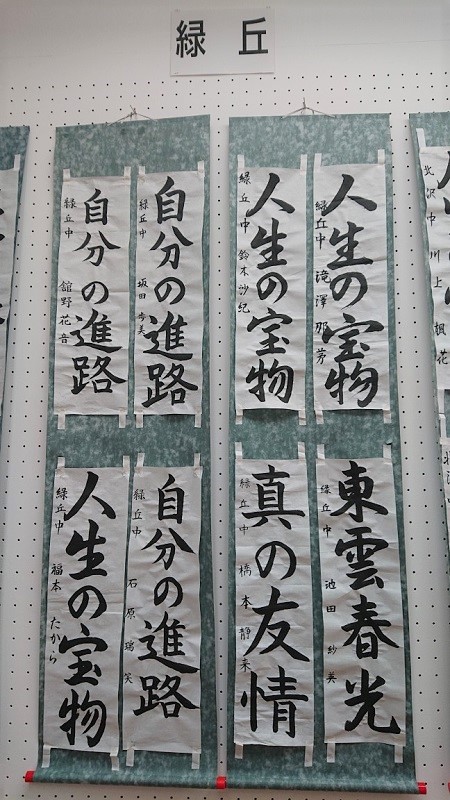 緑丘
人生の宝物
緑丘中 滝澤 那芳
人生の宝物
緑丘中 鈴木沙紀
東雲春光
緑丘中 池田 紗英
真の友情
緑丘中 橋本 静来
自分の進路
緑丘中 坂田 歩美
自分の進路
緑丘中 舘野花音
自分の進路
緑丘中 石原 瑞笑
人生の宝物
緑丘中 福本 たから
北沢中 川上 楓花